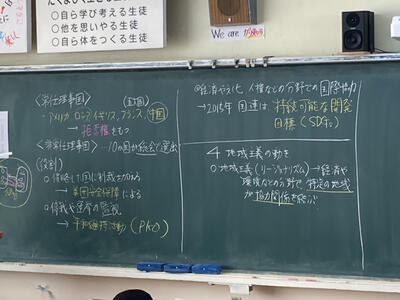 ○自ら学び考える生徒
○他を思いやる生徒
○自ら体をつくる生徒
We are
<常任理事国>
・アメリカ ロシア イギリス フランス 中国
→ 拒否権をもつ
<非常任理事国> … 10か国が総会で選出
<役割>
○侵略した国に制裁を加える
→ 集団安全保障による
○停戦や選挙の監視
→ 平和維持活動 (PKO)
◎経済や文化、人権などの分野での国際協力
→2015年 国連は、持続可能な開発
目標 (SDGs)
4 地域主義の動き
○地域主義 (リージョナリズム) → 経済や
環境などの分野で、特定の地域
が協力関係を結ぶ